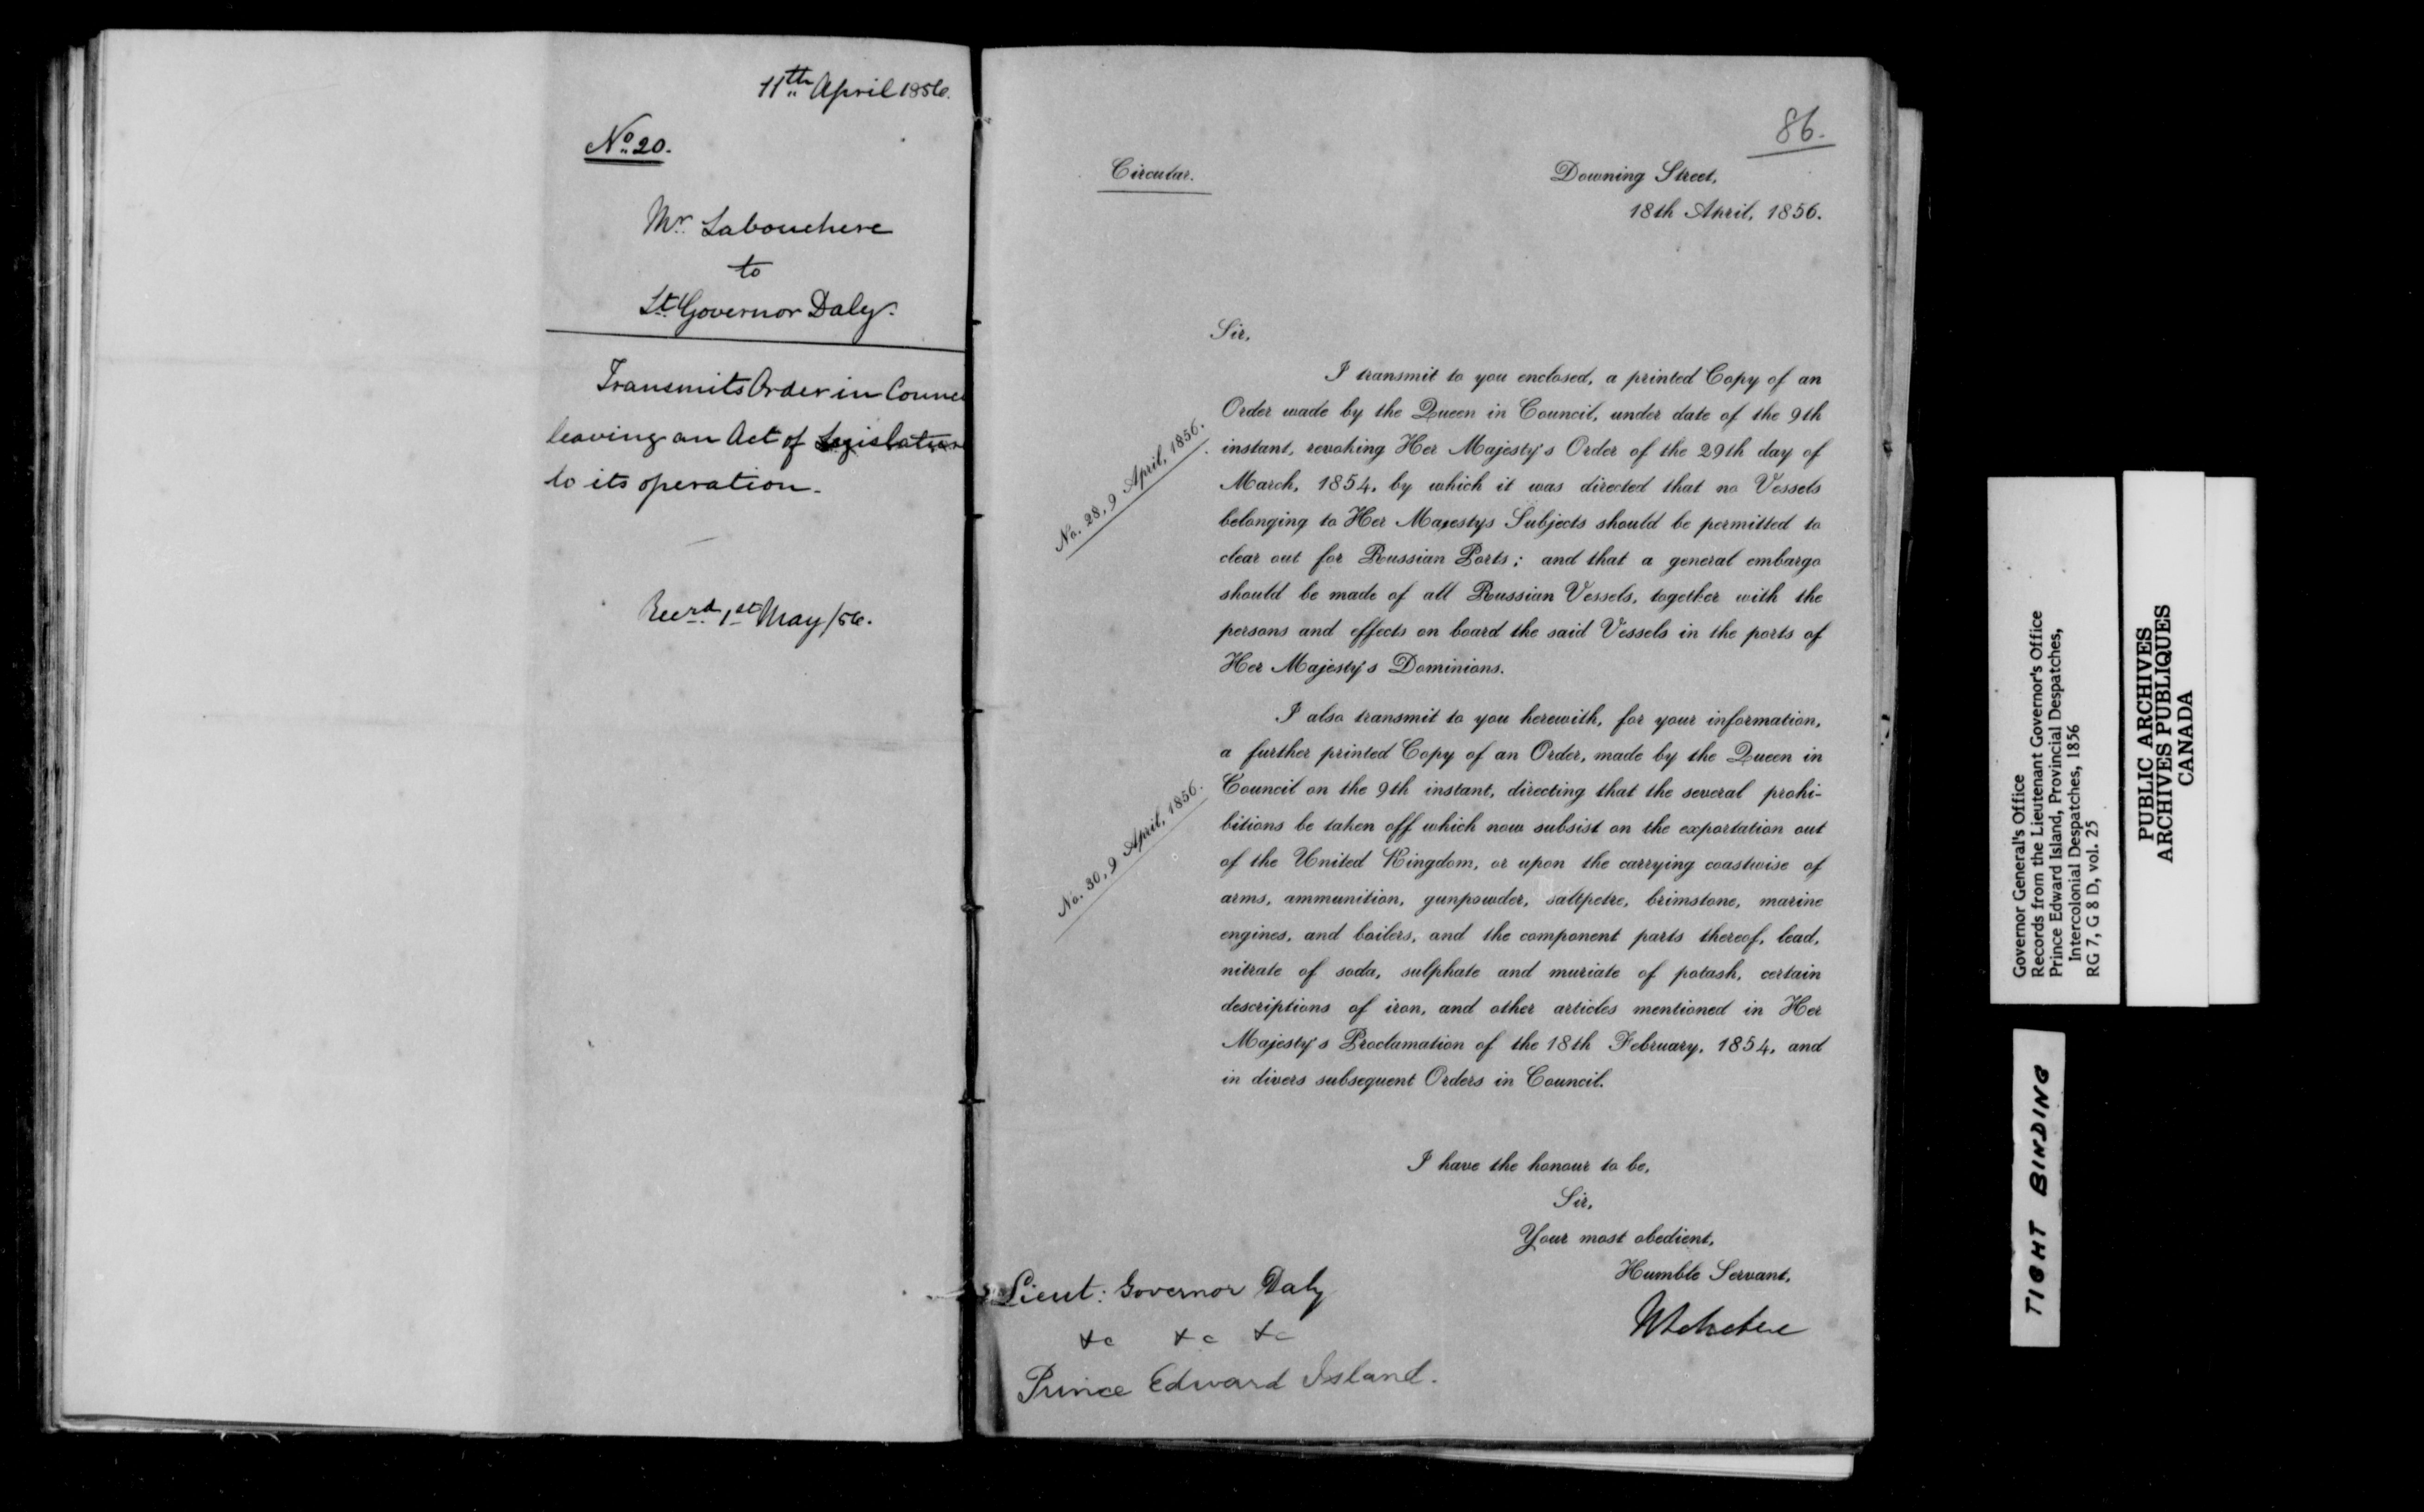 11th April 1856.
No. 20.
Mr. Labouchere
to
Lt. Governor Daly.
Transmits Order in Counci
leaving an Act of Legislature
to its operation.
Recd. 1st May/56.
86.
Circular.
Downing Street,
18th April, 1856.
Sir,
I transmit to you enclosed, a printed Copy of an
Order made by the Queen in Council, under date of the 9th
instant, revoking Her Majesty's Order of the 29th day of
March, 1854, by which it was directed that no Vessels
belonging to Her Majestys Subjects should be permitted to
clear out for Russian Ports; and that a general embargo
should be made of all Russian Vessels, together with the
persons and effects on board the said Vessels in the ports of
Her Majesty's Dominions.
No. 28, 9 April, 1856.
I also transmit to you herewith, for your information,
a further printed Copy of an Order, made by the Queen in
Council on the 9th instant, directing that the several prohi-
bitions be taken off which now subsist on the exportation out
of the United Kingdom, or upon the carrying coastwise of
arms, ammunition, gunpowder, saltpetre, brimstone, marine
engines, and boilers, and the component parts thereof, lead,
nitrate of soda, sulphate and muriate of potash, certain
descriptions of iron, and other articles mentioned in Her
Majesty's Proclamation of the 18th February, 1854, and
in divers subsequent Orders in Council.
No. 30, 9 April, 1856.
I have the honour to be,
Sir,
Your most obedient,
Humble Servant,
Lieut: Governor Daly
&c &c &c
Prince Edward Island.
Governor General's Office
Records from the Lieutenant Governor's Office
Prince Edward Island, Provincial Despatches,
Intercolonial Despatches, 1856
RG 7, G 8 D, vol. 25
PUBLIC ARCHIVES
ARCHIVES PUBLIQUES
CANADA
TIGHT BINDING